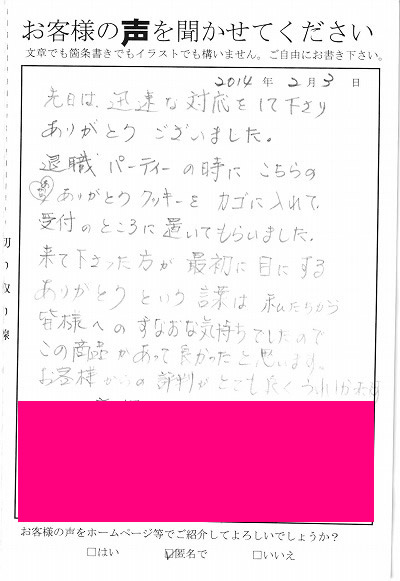 お客様の声を聞かせてください
文章でも箇条書きでもイラストでも構いません。ご自由にお書き下さい。
2014 年 2 月 3 日
先日は、迅速な対応をして下さり
ありがとうございました。
退職パーティーの時に こちらの
ありがとうクッキーを カゴに入れて、
受付のところに置いてもらいました。
来て下さった方が 最初に目にする
ありがとう という言葉は 私たちから
皆様への すなおな気持ちでしたので
この商品があって良かったと思います。
お客様からの評判がとても良く うれしかった
切り取り線
お客様の声をホームページ等でご紹介してよろしいでしょうか？
□はい ☑匿名で □いいえ